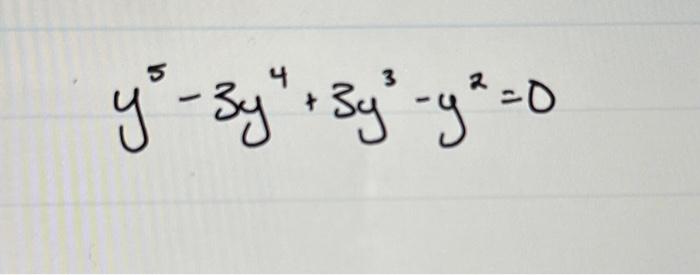 y⁵ - 3y⁴ + 3y³ - y² = 0